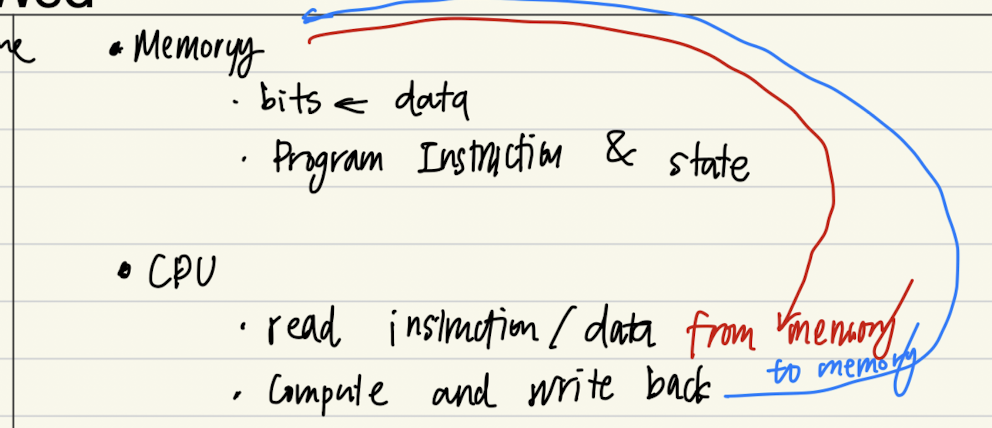 • Memoryy
· bits ← data
· Program Instruction & state
• CPU
· read instruction / data from memory
· Compute and write back to memory